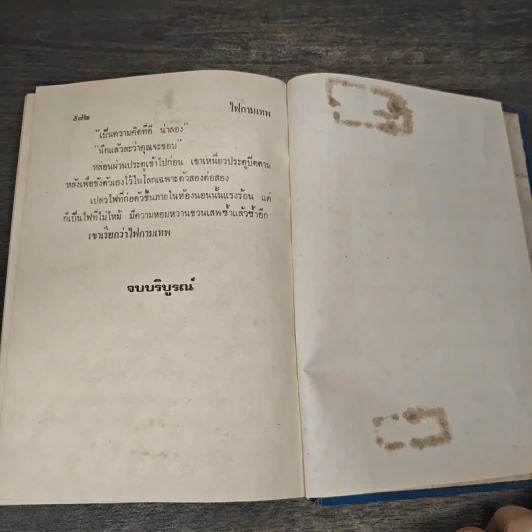 ๕๗๒
ไฟกามเทพ
"เป็นความคิดที่ดี น่าลอง"
"นึกแล้วละว่าคุณจะชอบ"
หล่อนผ่านประตูเข้าไปก่อน เขาเหนี่ยวประตูปิดตาม
หลังเพื่อขังตัวเองไว้ในโลกเฉพาะตัวสองต่อสอง
เปลวไฟที่ก่อตัวขึ้นภายในห้องนอนนั้นแรงร้อน แต่
ก็เป็นไฟที่ไม่ไหม้ มีความหอมหวานชวนเสพซ้ำแล้วซ้ำอีก
เขาเรียกว่าไฟกามเทพ
จบบริบูรณ์